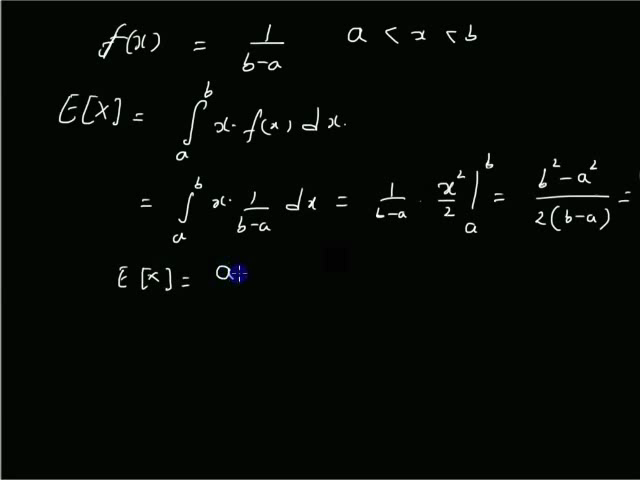 f(x) = 1/(b-a)    a < x < b
E[X] = ∫_a^b x · f(x) dx.
= ∫_a^b x · 1/(b-a) dx = 1/(b-a) · x²/2 |_a^b = (b² - a²)/(2(b-a)) =
E[x] = a